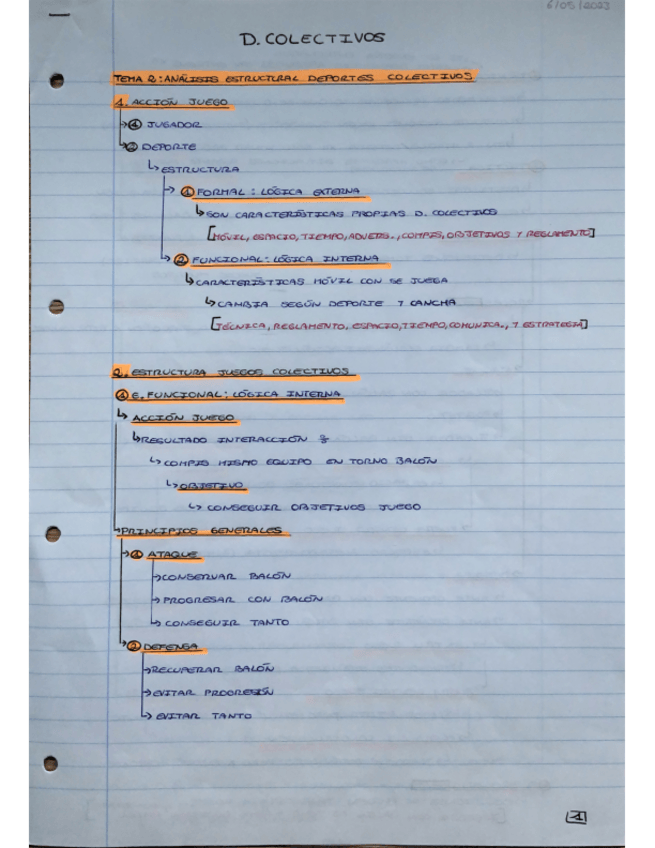 6/05/2023
D. COLECTIVOS
TEMA 2: ANÁLISIS ESTRUCTURAL DEPORTES COLECTIVOS
1. ACCIÓN JUEGO
→① JUGADOR
→② DEPORTE
↳ ESTRUCTURA
→ ① FORMAL: LÓGICA EXTERNA
↳ SON CARACTERÍSTICAS PROPIAS D. COLECTIVOS
[MÓVIL, ESPACIO, TIEMPO, ADVERS., COMPIS, OBJETIVOS Y REGLAMENTO]
→ ② FUNCIONAL: LÓGICA INTERNA
↳ CARACTERÍSTICAS MÓVIL CON SE JUEGA
↳ CAMBIA SEGÚN DEPORTE Y CANCHA
[TÉCNICA, REGLAMENTO, ESPACIO, TIEMPO, COMUNICA., Y ESTRATEGIA]
2. ESTRUCTURA JUEGOS COLECTIVOS
① E. FUNCIONAL: LÓGICA INTERNA
↳ ACCIÓN JUEGO
↳ RESULTADO INTERACCIÓN
↳ COMPIS MISMO EQUIPO EN TORNO BALÓN
↳ OBJETIVO
↳ CONSEGUIR OBJETIVOS JUEGO
→ PRINCIPIOS GENERALES
→① ATAQUE
→ CONSERVAR BALÓN
→ PROGRESAR CON BALÓN
↳ CONSEGUIR TANTO
→② DEFENSA
→ RECUPERAR BALÓN
→ EVITAR PROGRESIÓN
↳ EVITAR TANTO
1